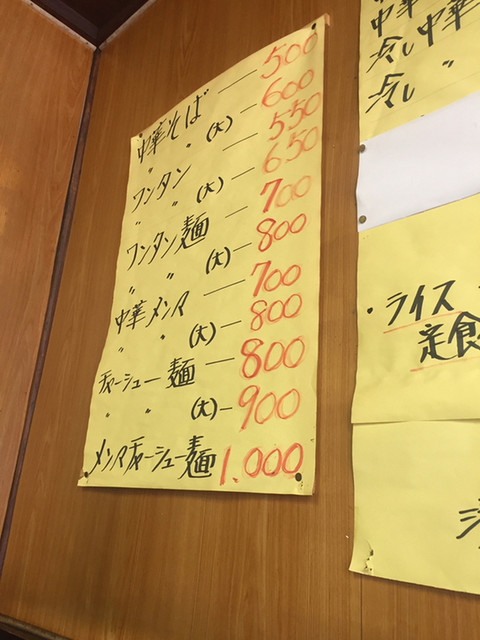 中華そば — 500
〃 〃 (大) 600
ワンタン — 550
〃 〃 (大) — 650
ワンタン麺 — 700
〃 〃 (大) — 800
中華メンマ — 700
〃 〃 (大) — 800
チャーシュー麺 — 800
〃 〃 (大) — 900
メンマチャーシュー麺 1.000
中華
冷し中華
冷し 〃
・ライス
定食